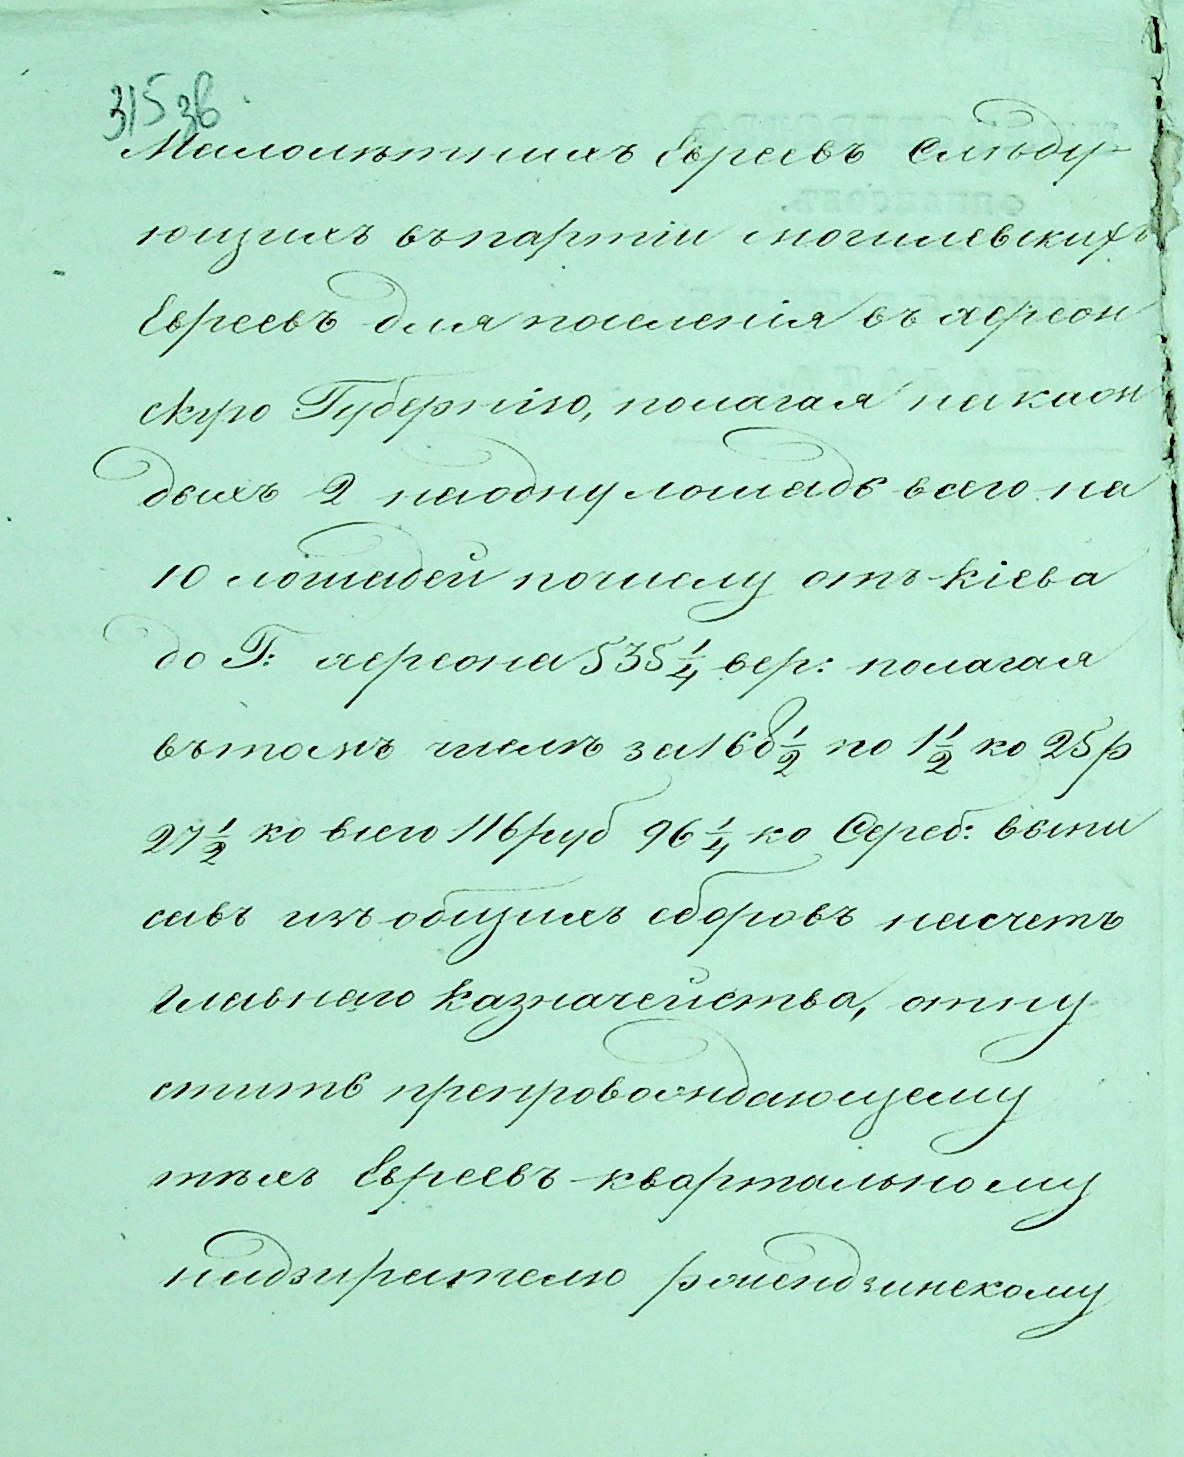 315 зв.
Малолѣтнихъ Евреевъ слѣду-
ющихъ въ партіи могилевскихъ
Евреевъ для поселенія въ херсон
скую Губернію, полагая на каж
дыхъ 2 на одну лошадь всего на
10 лошадей почислу отъ кіева
до Г: херсона 535 1/4 вер: полагая
въ томъ числѣ за 168 1/2 по 1 1/2 ко 25 р
27 1/2 ко всего 116 руб 96 1/4 ко Сереб: выпи
савъ изъ общихъ сборовъ насчетъ
Главнаго казначейства, отпу
стить препровождающему
тѣхъ Евреевъ квартальному
надзирателю ржендзинскому